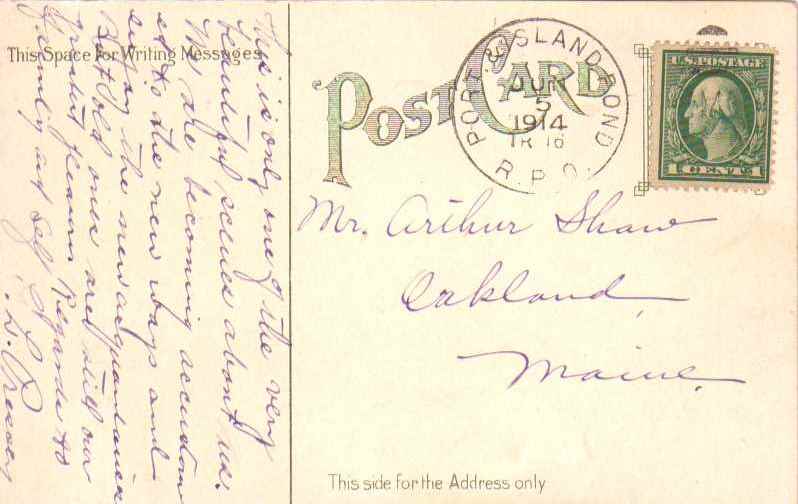 This Space for Writing Messages
POST CARD
PORT. & ISLAND POND
JUN
5
1914
TR 16
R.P.O.
U.S. POSTAGE
1 CENT 1
Mr. Arthur Shaw
Oakland
Maine.
This side for the Address only
This is only one of the very
beautiful scenes about us.
We are becoming accustom
ed to the new ways and
enjoy the new acquaintances
But old ones are still our
greatest pleasures. Regards to
family and self